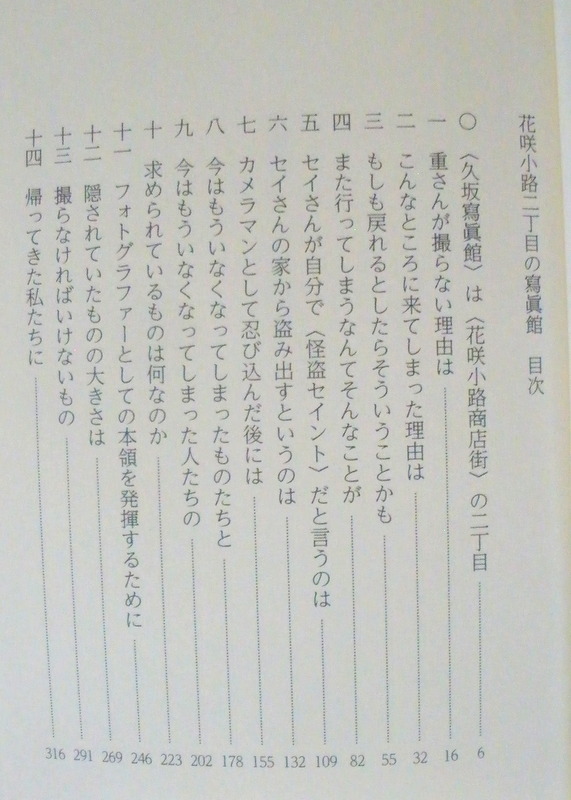 花咲小路二丁目の寫眞館　目次
〇　〈久坂寫眞館〉は〈花咲小路商店街〉の二丁目 6
一　重さんが撮らない理由は 16
二　こんなところに来てしまった理由は 32
三　もしも戻れるとしたらそういうことかも 55
四　また行ってしまうなんてそんなことが 82
五　セイさんが自分で〈怪盗セイント〉だと言うのは 109
六　セイさんの家から盗み出すというのは 132
七　カメラマンとして忍び込んだ後には 155
八　今はもういなくなってしまったものたちと 178
九　今はもういなくなってしまった人たちの 202
十　求められているものは何なのか 223
十一　フォトグラファーとしての本領を発揮するために 246
十二　隠されていたものの大きさは 269
十三　撮らなければいけないもの 291
十四　帰ってきた私たちに 316